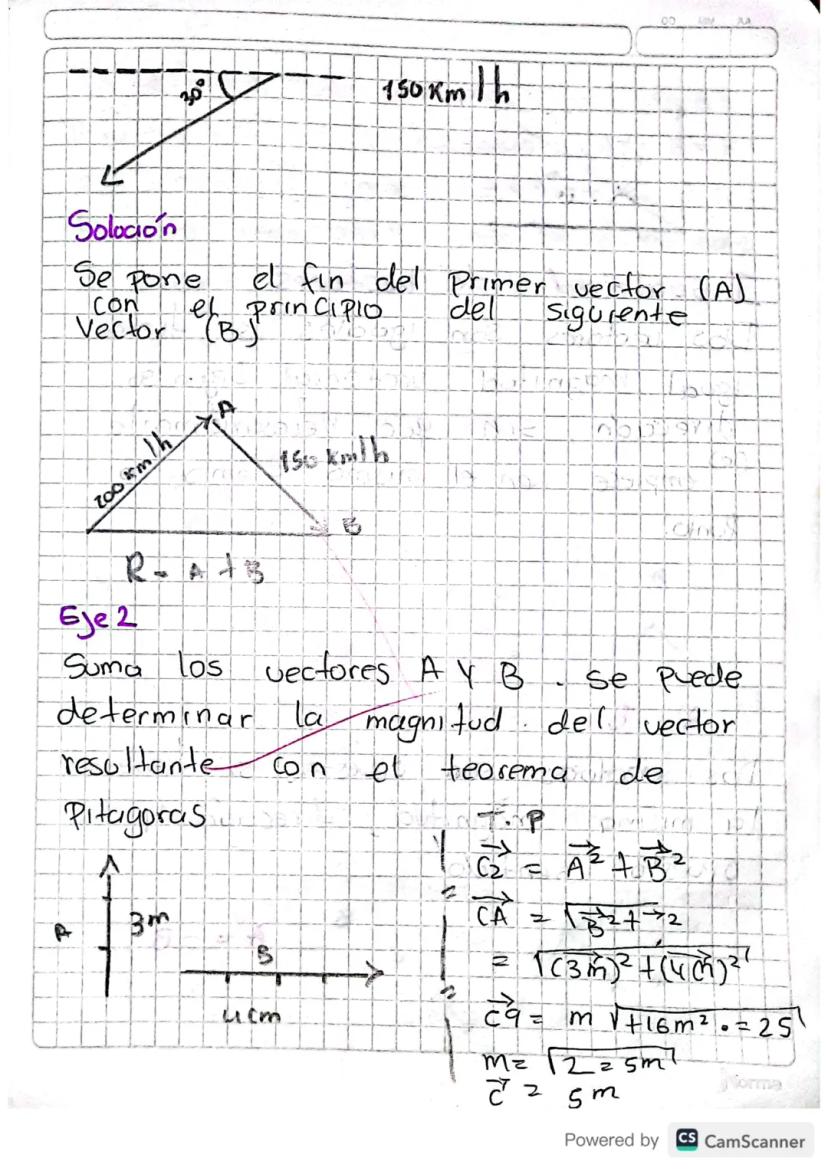 30°
150 Km/h
Solución
Se pone el fin del Primer vector (A)
con el principio del sigürente
Vector (B)
A
200 km/h
150 km/h
B
R = A + B
Eje 2
Suma los vectores A Y B . se puede
determinar la magnitud del vector
resultante con el teorema de
Pitagoras
T.P
C2 = A² + B²
A 3m
CA = √B²+→2
B
= √(3m)² + (4m)²
4cm
C9 = m √+16m² . = 25
m = √2 = 5m
C = 5m
Norma
Powered by CS CamScanner